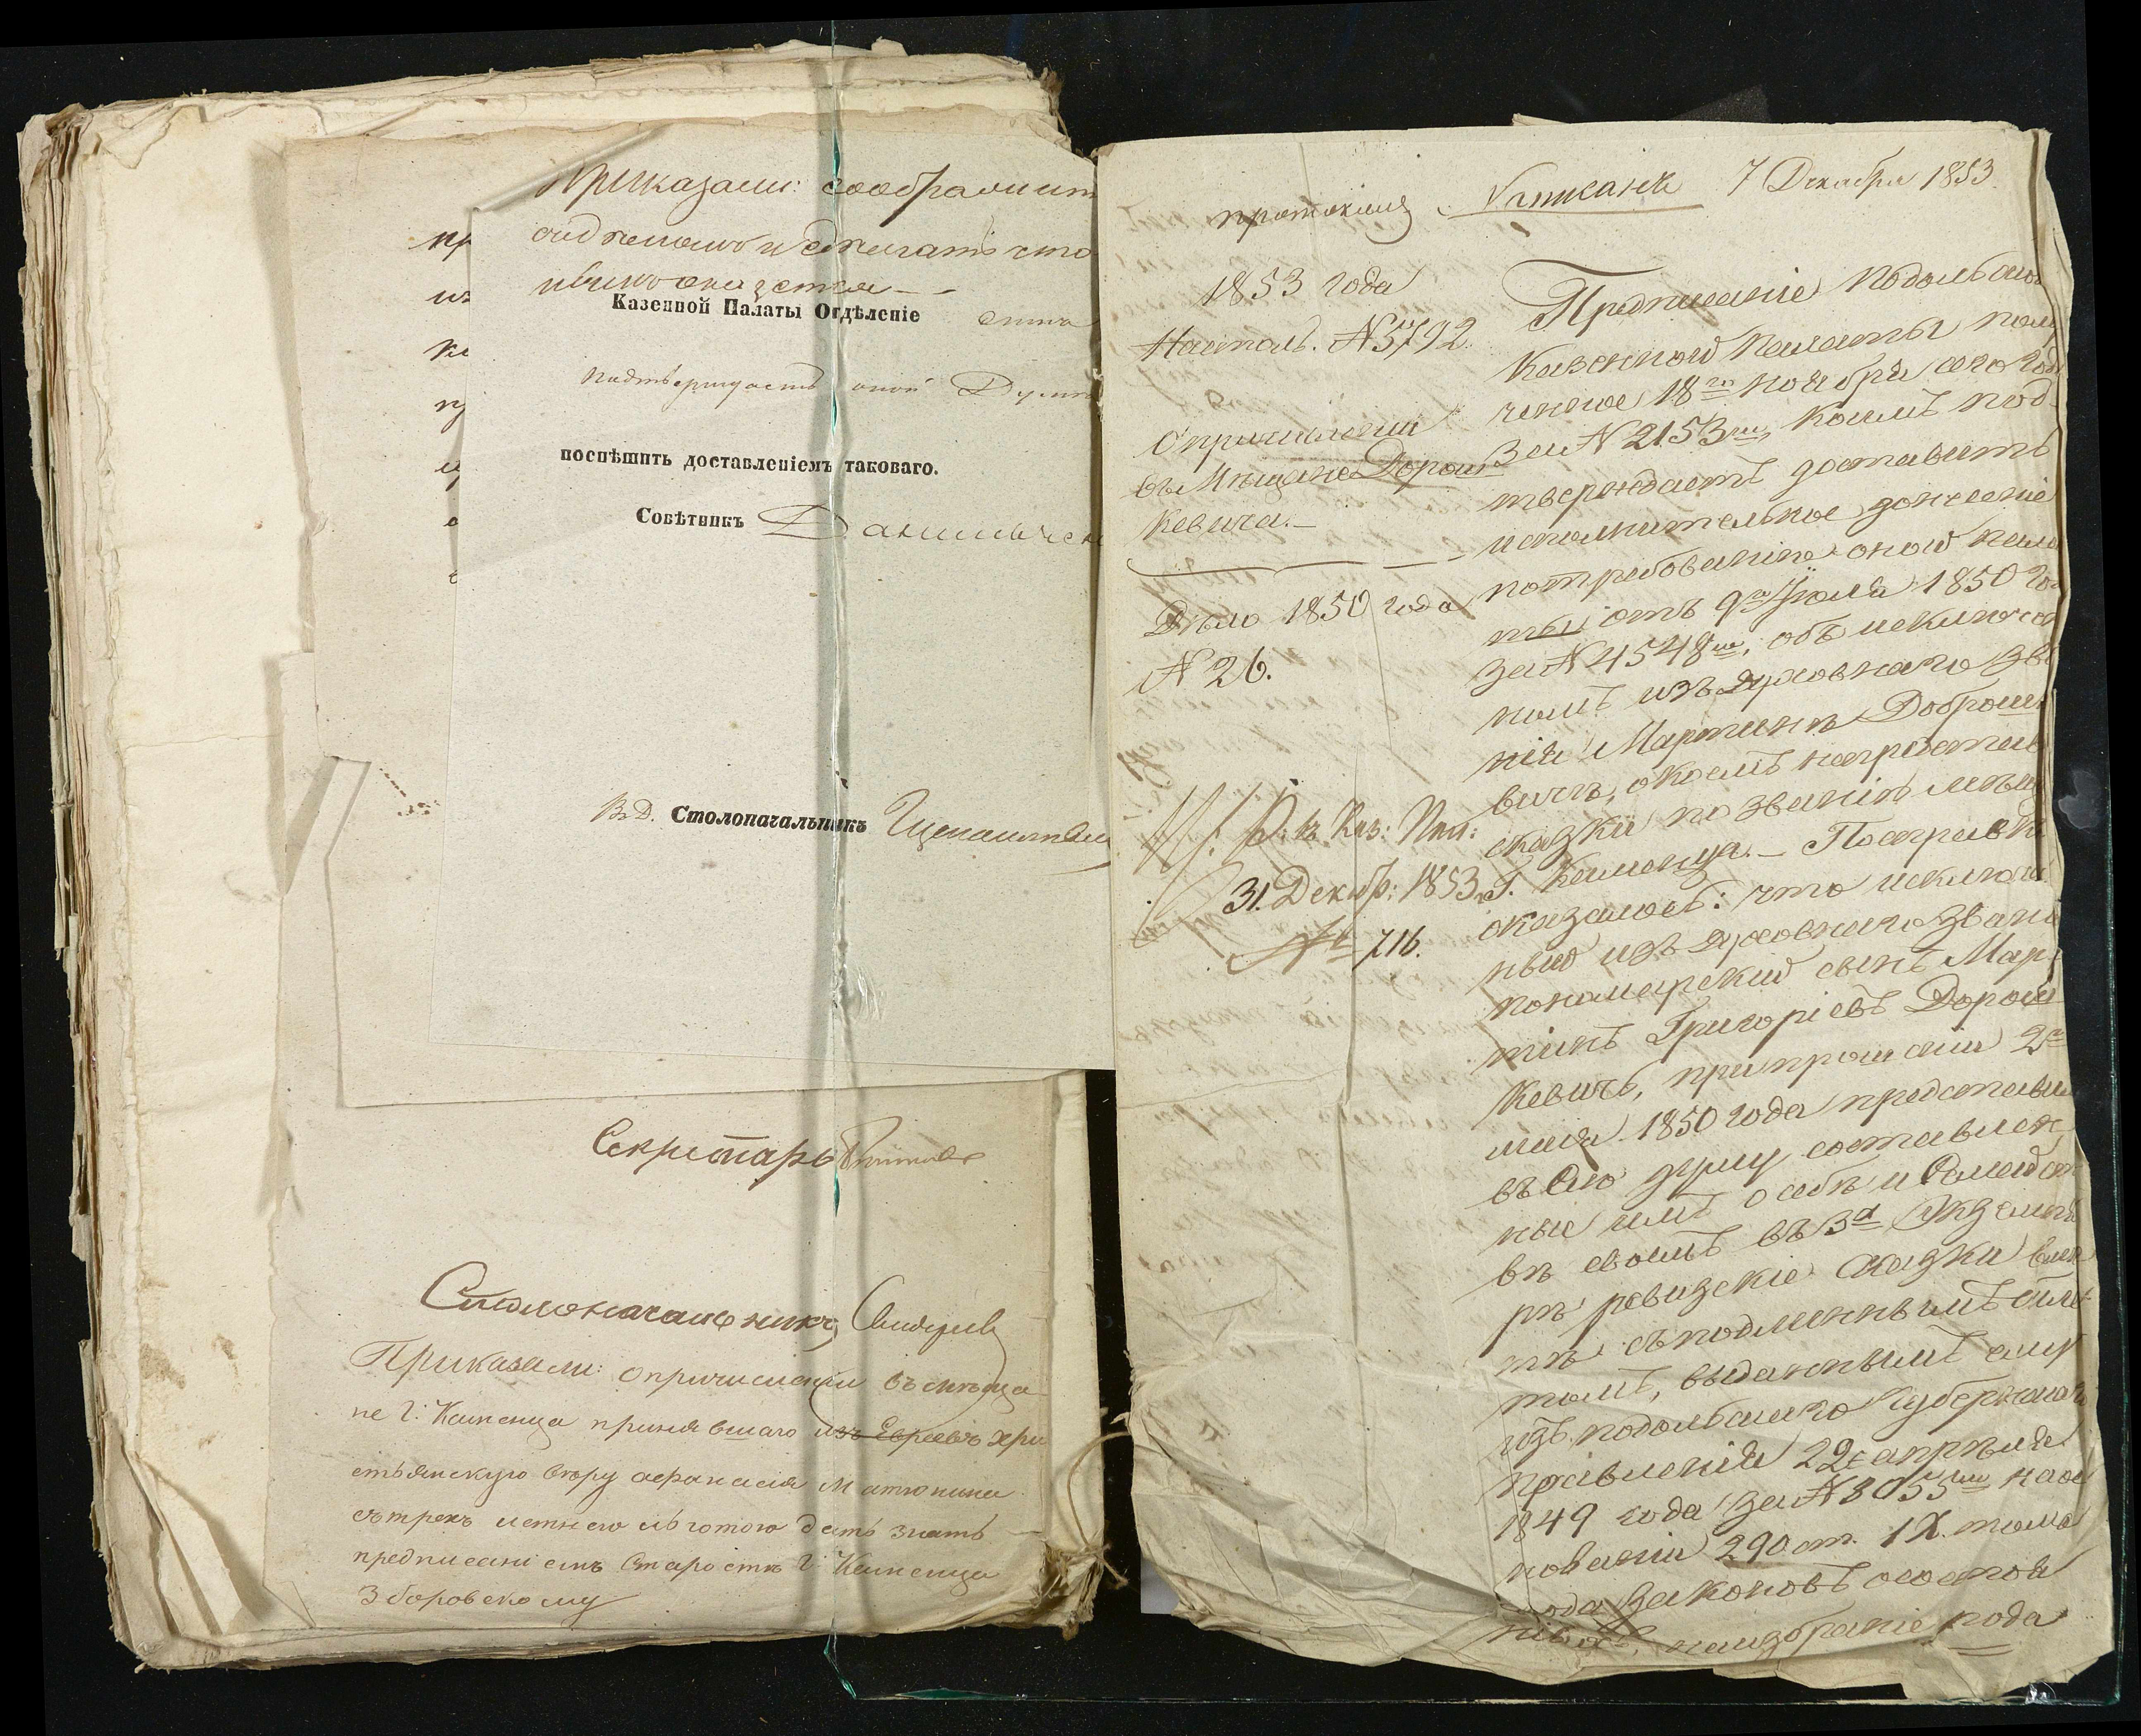 Приказали: сообразит
и сделать что
Казенной Палаты Отдѣленіе
подтверждаетъ оной Думѣ
поспѣшить доставленіемъ таковаго.
Совѣтникъ
В.Д. Столоначальникъ
Секретарь
Столоначальникъ
Приказали: о причисленіи въ мѣща
не Г. Каменца принявшаго изъ Евреевъ хри
стьянскую вѣру Афанасія Матюнина
съ трехъ летнею льготою дать знать
предписаніемъ Старостѣ Г. Каменца
Зборовскому
7 Декабря 1853.
1853 года
Настоль. № 3792.
О причисленіи
въ Мѣщане Дорош
кевича.
Дѣло 1850 года
№ 26.
31. Декабр: 1853 г.
№ 716.
Предписаніе Подольской
Казенной Палаты полу
ченное 18го ноября сего года
за № 2153м, коимъ под
тверждаетъ доставить
исполнительное донесеніе
по требованію оной пала
ты отъ 9го Іюля 1850 го
за № 4548м, объ исключен
номъ изъ Духовнаго зва
нія Мартинѣ Доброше
вичѣ, о коемъ
сказки по званію мѣщ
Г. Каменца. – По справкѣ
оказалось: что исключен
ный изъ Духовнаго звані
пономарскій сынъ Мар
тинъ Григоріевъ Дорош
кевичъ, при прошеніи 2го
мая 1850 года представил
въ Сію думу составлен
ные имъ о себѣ и Семейст
вѣ своемъ въ 3х Экземпля
рѣ ревизскіе сказки вмѣс
тѣ съ подлиннымъ биле
томъ, выданнымъ ему
изъ Подольскаго Губернскаго
правленія 22го апрѣля
1849 года за № 3055м на ос
нованіи 290 ст. IX. тома
Свода Законовъ о состоя
ніяхъ, на избраніе рода